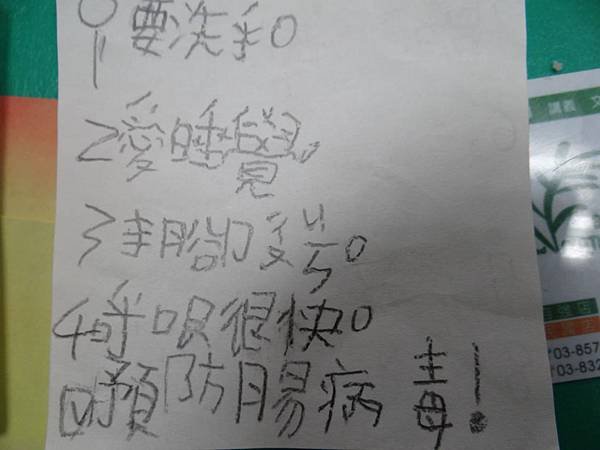 1要洗手。
2愛睡覺。
3手腳
4呼吸很快。
☑預防腸病毒!
講義 文
03-857
03-832